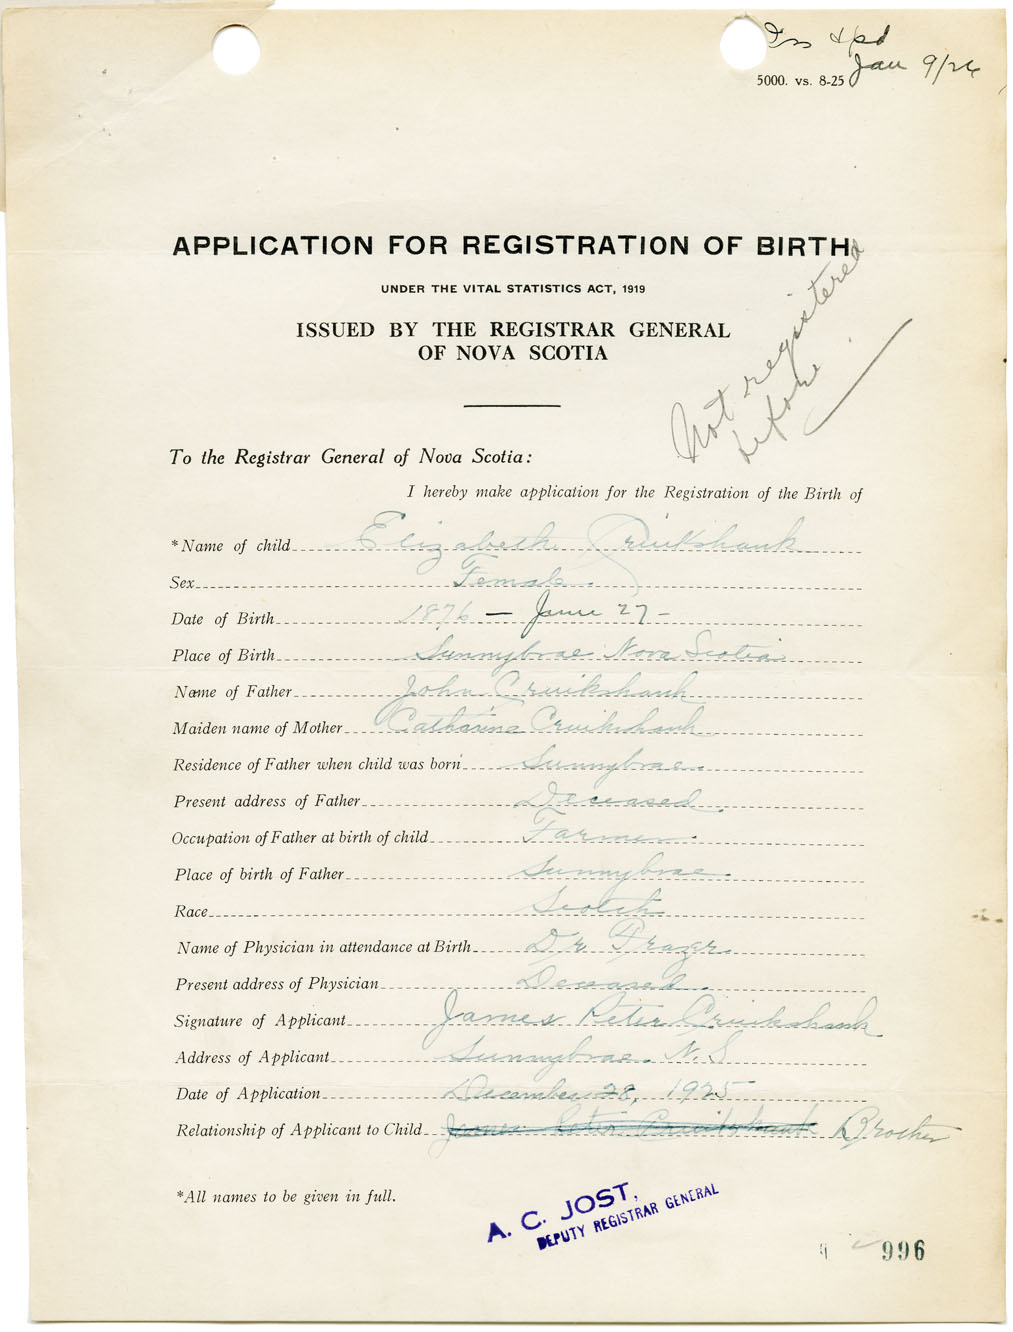 Iss & pd
Jan 9/26
5000. vs. 8-25
APPLICATION FOR REGISTRATION OF BIRTH
UNDER THE VITAL STATISTICS ACT, 1919
ISSUED BY THE REGISTRAR GENERAL
OF NOVA SCOTIA
Not registered
before.
To the Registrar General of Nova Scotia:
I hereby make application for the Registration of the Birth of
*Name of child Elizabeth Cruikshank
Sex Female.
Date of Birth 1876 — June 27 -
Place of Birth Sunnybrae Nova Scotia
Name of Father John Cruikshank
Maiden name of Mother Catharine Cruikshank
Residence of Father when child was born Sunnybrae.
Present address of Father Deceased.
Occupation of Father at birth of child Farmer.
Place of birth of Father Sunnybrae.
Race Scotch
Name of Physician in attendance at Birth Dr Frazer.
Present address of Physician Deceased.
Signature of Applicant James Peter Cruikshank
Address of Applicant Sunnybrae. N.S
Date of Application December 28, 1925
Relationship of Applicant to Child James Peter Cruikshank Brother
*All names to be given in full.
A. C. JOST,
DEPUTY REGISTRAR GENERAL
996